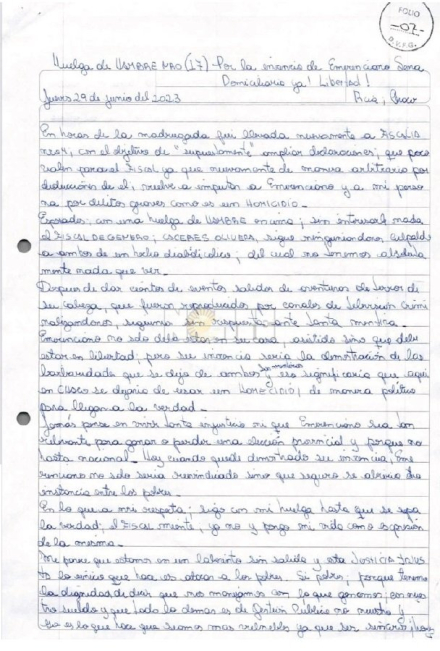 FOLIO
-07-
Huelga de HAMBRE NRO (17) - Por la inocencia de Emerenciano Sena
Domiciliaria ya! Libertad!
Jueves 29 de junio del 2023
En horas de la madrugada fui llevada nuevamente a FISCALIA
con el objetivo de "supuestamente" ampliar declaraciones; que poco
valen para el Fiscal ya que nuevamente de manera arbitraria por
deducciones de el, vuelve a imputar a Emerenciano y a mi perso
na por delitos graves como es un HOMICIDIO.
con una huelga de HAMBRE encima; sin nada
el FISCAL DE CACERES OLIVERA, sigue culpando
a ambos de un hecho del cual no tenemos absoluta
mente nada que ver.
Despues de dar cientos de eventos salidos de aventuras de
su cabeza, que fueron reproducidos por canales de television crimi
nalizandonos, seguimos sin respuesta ante tanta mentira.
Emerenciano no solo debe estar en su casa, sino que debe
estar en libertad; pero su inocencia seria la demostración de las
barbaridades que se dijo de ambos y eso significaria que aqui
en CHACO se dejaria de usar un HOMICIDIO, de manera politica
para llegar a la verdad.
Jamás pense en vivir tanta injusticia ni que Emerenciano sea tan
relevante para ganar o perder una elección provincial y porque no
hasta nacional. Hoy cuando quede demostrado su inocencia, Eme
renciano no solo seria reivindicado sino que seguro se abriria otra
instancia entre los pobres.
En lo que a mi respecta; sigo con mi huelga hasta que se sepa
la verdad, el Fiscal miente, yo no y pongo mi vida como expresión
de la misma.
Me parece que estamos en un laberinto sin salida y esta JUSTICIA INJUS
TA lo unico que hace es atacar a los pobres. Si pobres, porque tenemos
la dignidad de decir que nos manejamos con lo que ganamos con nues
tro sueldo y que todo lo demas es de Gestión Publica no nuestro y
eso es lo que hace que seamos mas vulnerables ya que ser